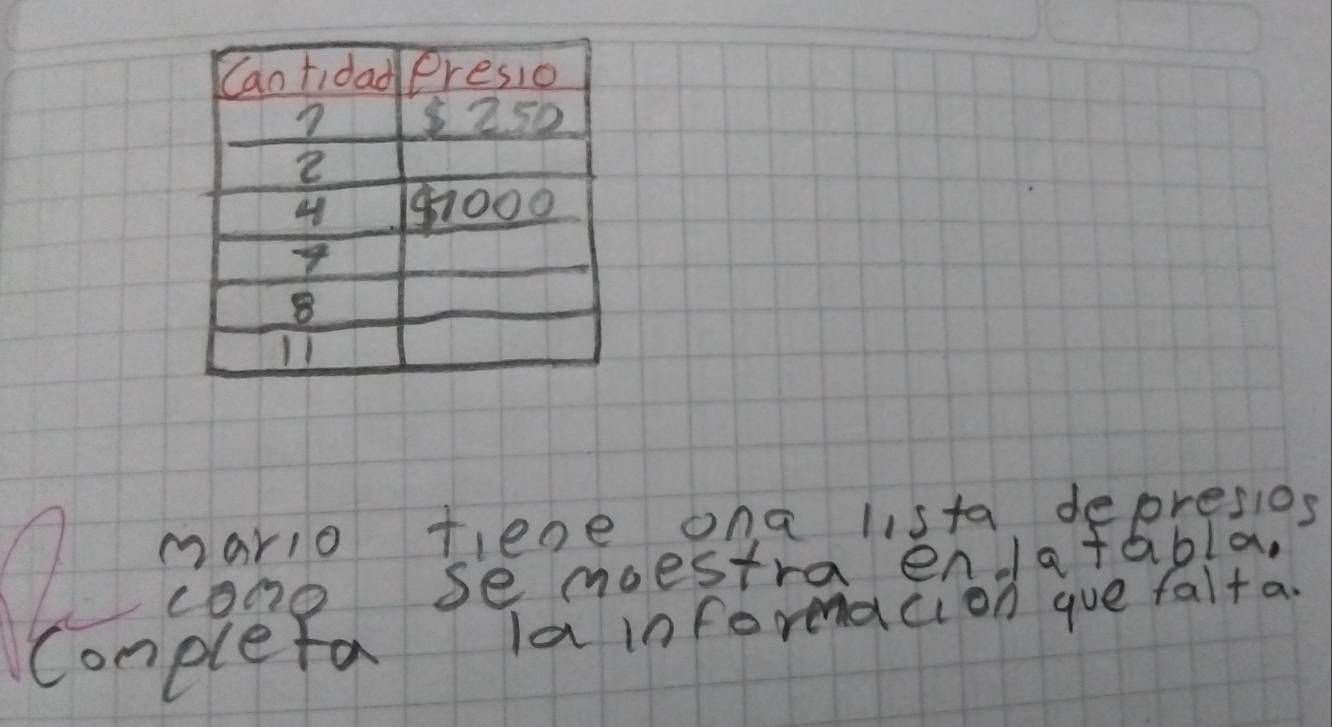 Cantidad Presio
1 $ 250
2
4 $1000
7
8
11
mario tiene ona lista de presios
como se moestra en la tabla.
Completa la informacion que falta.